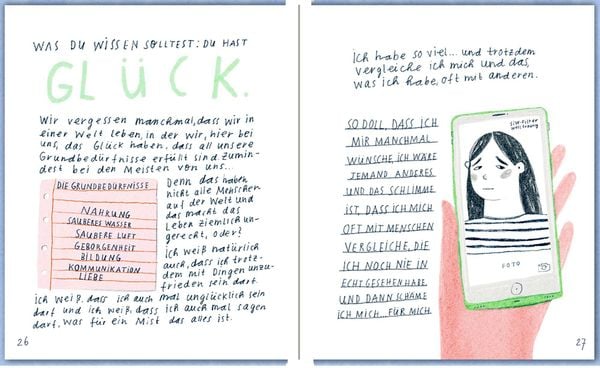 WAS DU WISSEN SOLLTEST: DU HAST
GLÜCK.
Wir vergessen manchmal, dass wir in
einer Welt leben, in der wir, hier bei
uns, das Glück haben, dass all unsere
Grundbedürfnisse erfüllt sind. Zumin-
dest bei den Meisten von uns...
DIE GRUNDBEDÜRFNISSE
NAHRUNG
SAUBERES WASSER
SAUBERE LUFT
GEBORGENHEIT
BILDUNG
KOMMUNIKATION
LIEBE
Denn das haben
nicht alle Menschen
auf der Welt und
das macht das
Leben ziemlich un-
gerecht, oder?
Ich weiß natürlich
auch, dass ich trotz-
dem mit Dingen unzu-
frieden sein darf.
Ich weiß, dass ich auch mal unglücklich sein
darf und ich weiß, dass ich auch mal sagen
darf, was für ein Mist das alles ist.
26
Ich habe so viel... und trotzdem
vergleiche ich mich und das,
was ich habe, oft mit anderen.
SO DOLL, DASS ICH
MIR MANCHMAL
WÜNSCHE, ICH WÄRE
JEMAND ANDERES
UND DAS SCHLIMME
IST, DASS ICH MICH
OFT MIT MENSCHEN
VERGLEICHE, DIE
ICH NOCH NIE IN
ECHT GESEHEN HABE
UND DANN SCHÄME
ICH MICH... FÜR MICH.
FOTO
27